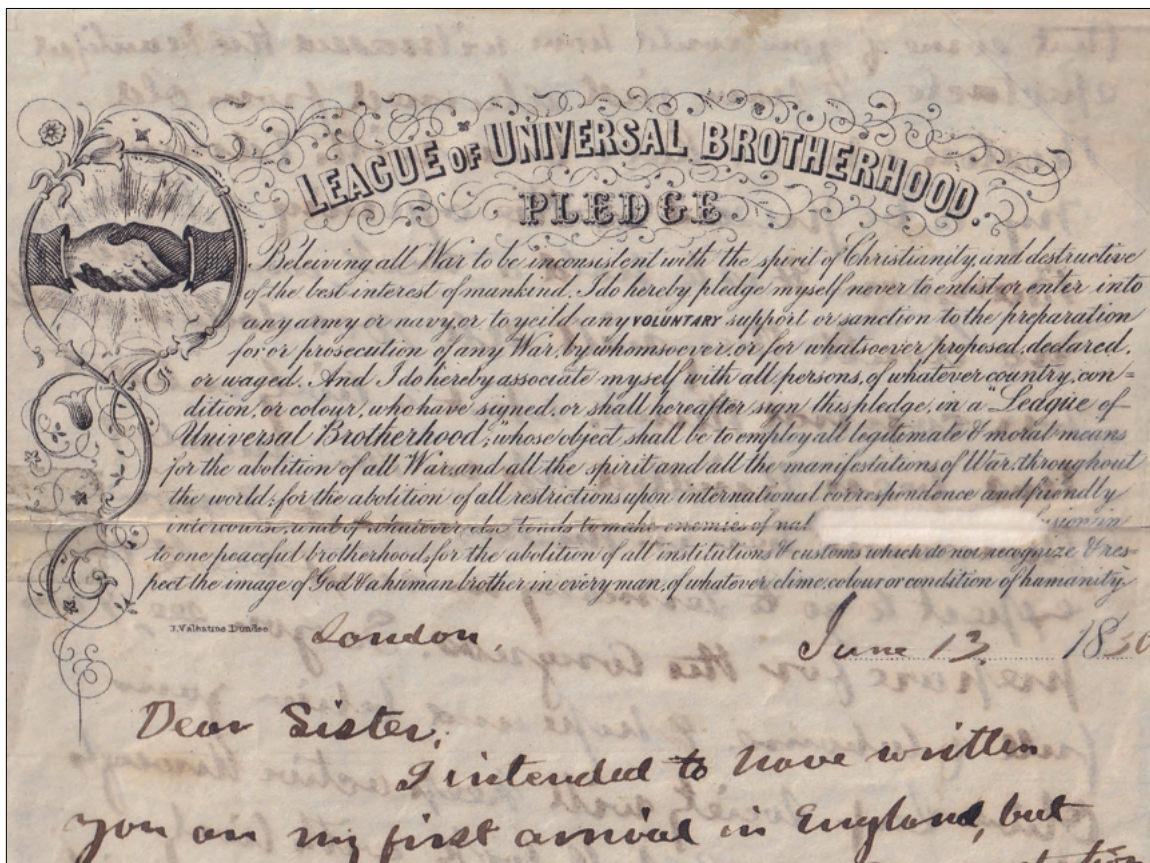 LEAGUE OF UNIVERSAL BROTHERHOOD.
PLEDGE.
Beleiving all War to be inconsistent with the spirit of Christianity, and destructive
of the best interest of mankind, I do hereby pledge myself never to enlist or enter into
any army or navy, or to yeild any VOLUNTARY support or sanction to the preparation
for or prosecution of any War, by whomsoever, or for whatsoever proposed, declared,
or waged. And I do hereby associate myself with all persons, of whatever country, con-
dition, or colour, who have signed, or shall hereafter sign this pledge, in a "League of
Universal Brotherhood"; whose object shall be to employ all legitimate & moral means
for the abolition of all War, and all the spirit and all the manifestations of War, throughout
the world; for the abolition of all restrictions upon international correspondence and friendly
intercourse, and of whatever else tends to make enemies of nat in
to one peaceful brotherhood, for the abolition of all institutions & customs which do not recognize & res-
pect the image of God & a human brother in every man, of whatever clime, colour or condition of humanity.
J. Valentine Dundee
London, June 13 1850
Dear Sister,
I intended to have written
you on my first arrival in England, but